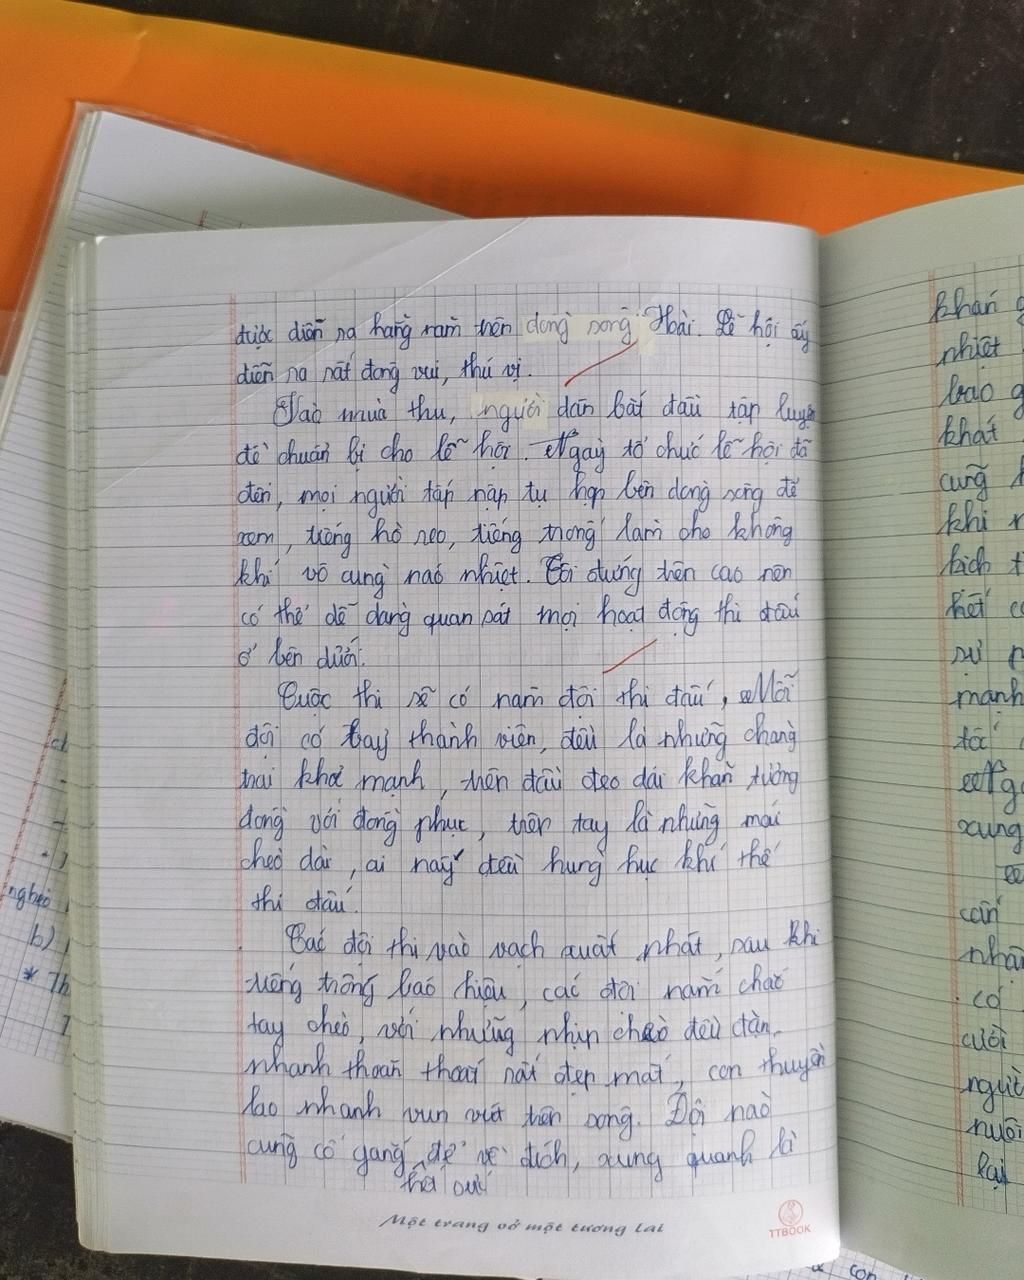 được diễn ra hằng năm trên dòng sông Hoài. Lễ hội ấy
diễn ra rất đông vui, thú vị.
Vào mùa thu, người dân bắt đầu tập luyện
để chuẩn bị cho lễ hội. Ngày tổ chức lễ hội đã
đến, mọi người tấp nập tụ họp bên dòng sông để
xem, tiếng hò reo, tiếng trống làm cho không
khí vô cùng náo nhiệt. Tôi đứng trên cao nên
có thể dễ dàng quan sát mọi hoạt động thi đấu
ở bên dưới.
Cuộc thi sẽ có năm đội thi đấu, Mỗi
đội có bảy thành viên, đều là những chàng
trai khoẻ mạnh, trên đầu đeo dải khăn tương
đồng với đồng phục, trên tay là những mái
chèo dài, ai nấy đều hừng hực khí thế
thi đấu.
Các đội thi vào vạch xuất phát, sau khi
tiếng trống báo hiệu, các đội nắm chắc
tay chèo, với những nhịp chèo đều đặn
nhanh thoăn thoắt rất đẹp mắt, con thuyền
lao nhanh vun vút trên sông. Đội nào
cũng cố gắng để về đích, xung quanh là
hết sức
Một trang vở một tương lai
TTBOOK
khăn
nhiệt
bao
khát
cũng
khi
kích
hết
sự
mạnh
tốc
xung
cần
nhận
có
cười
ngườ
nuôi
lại
nghèo
b)
* Th
con